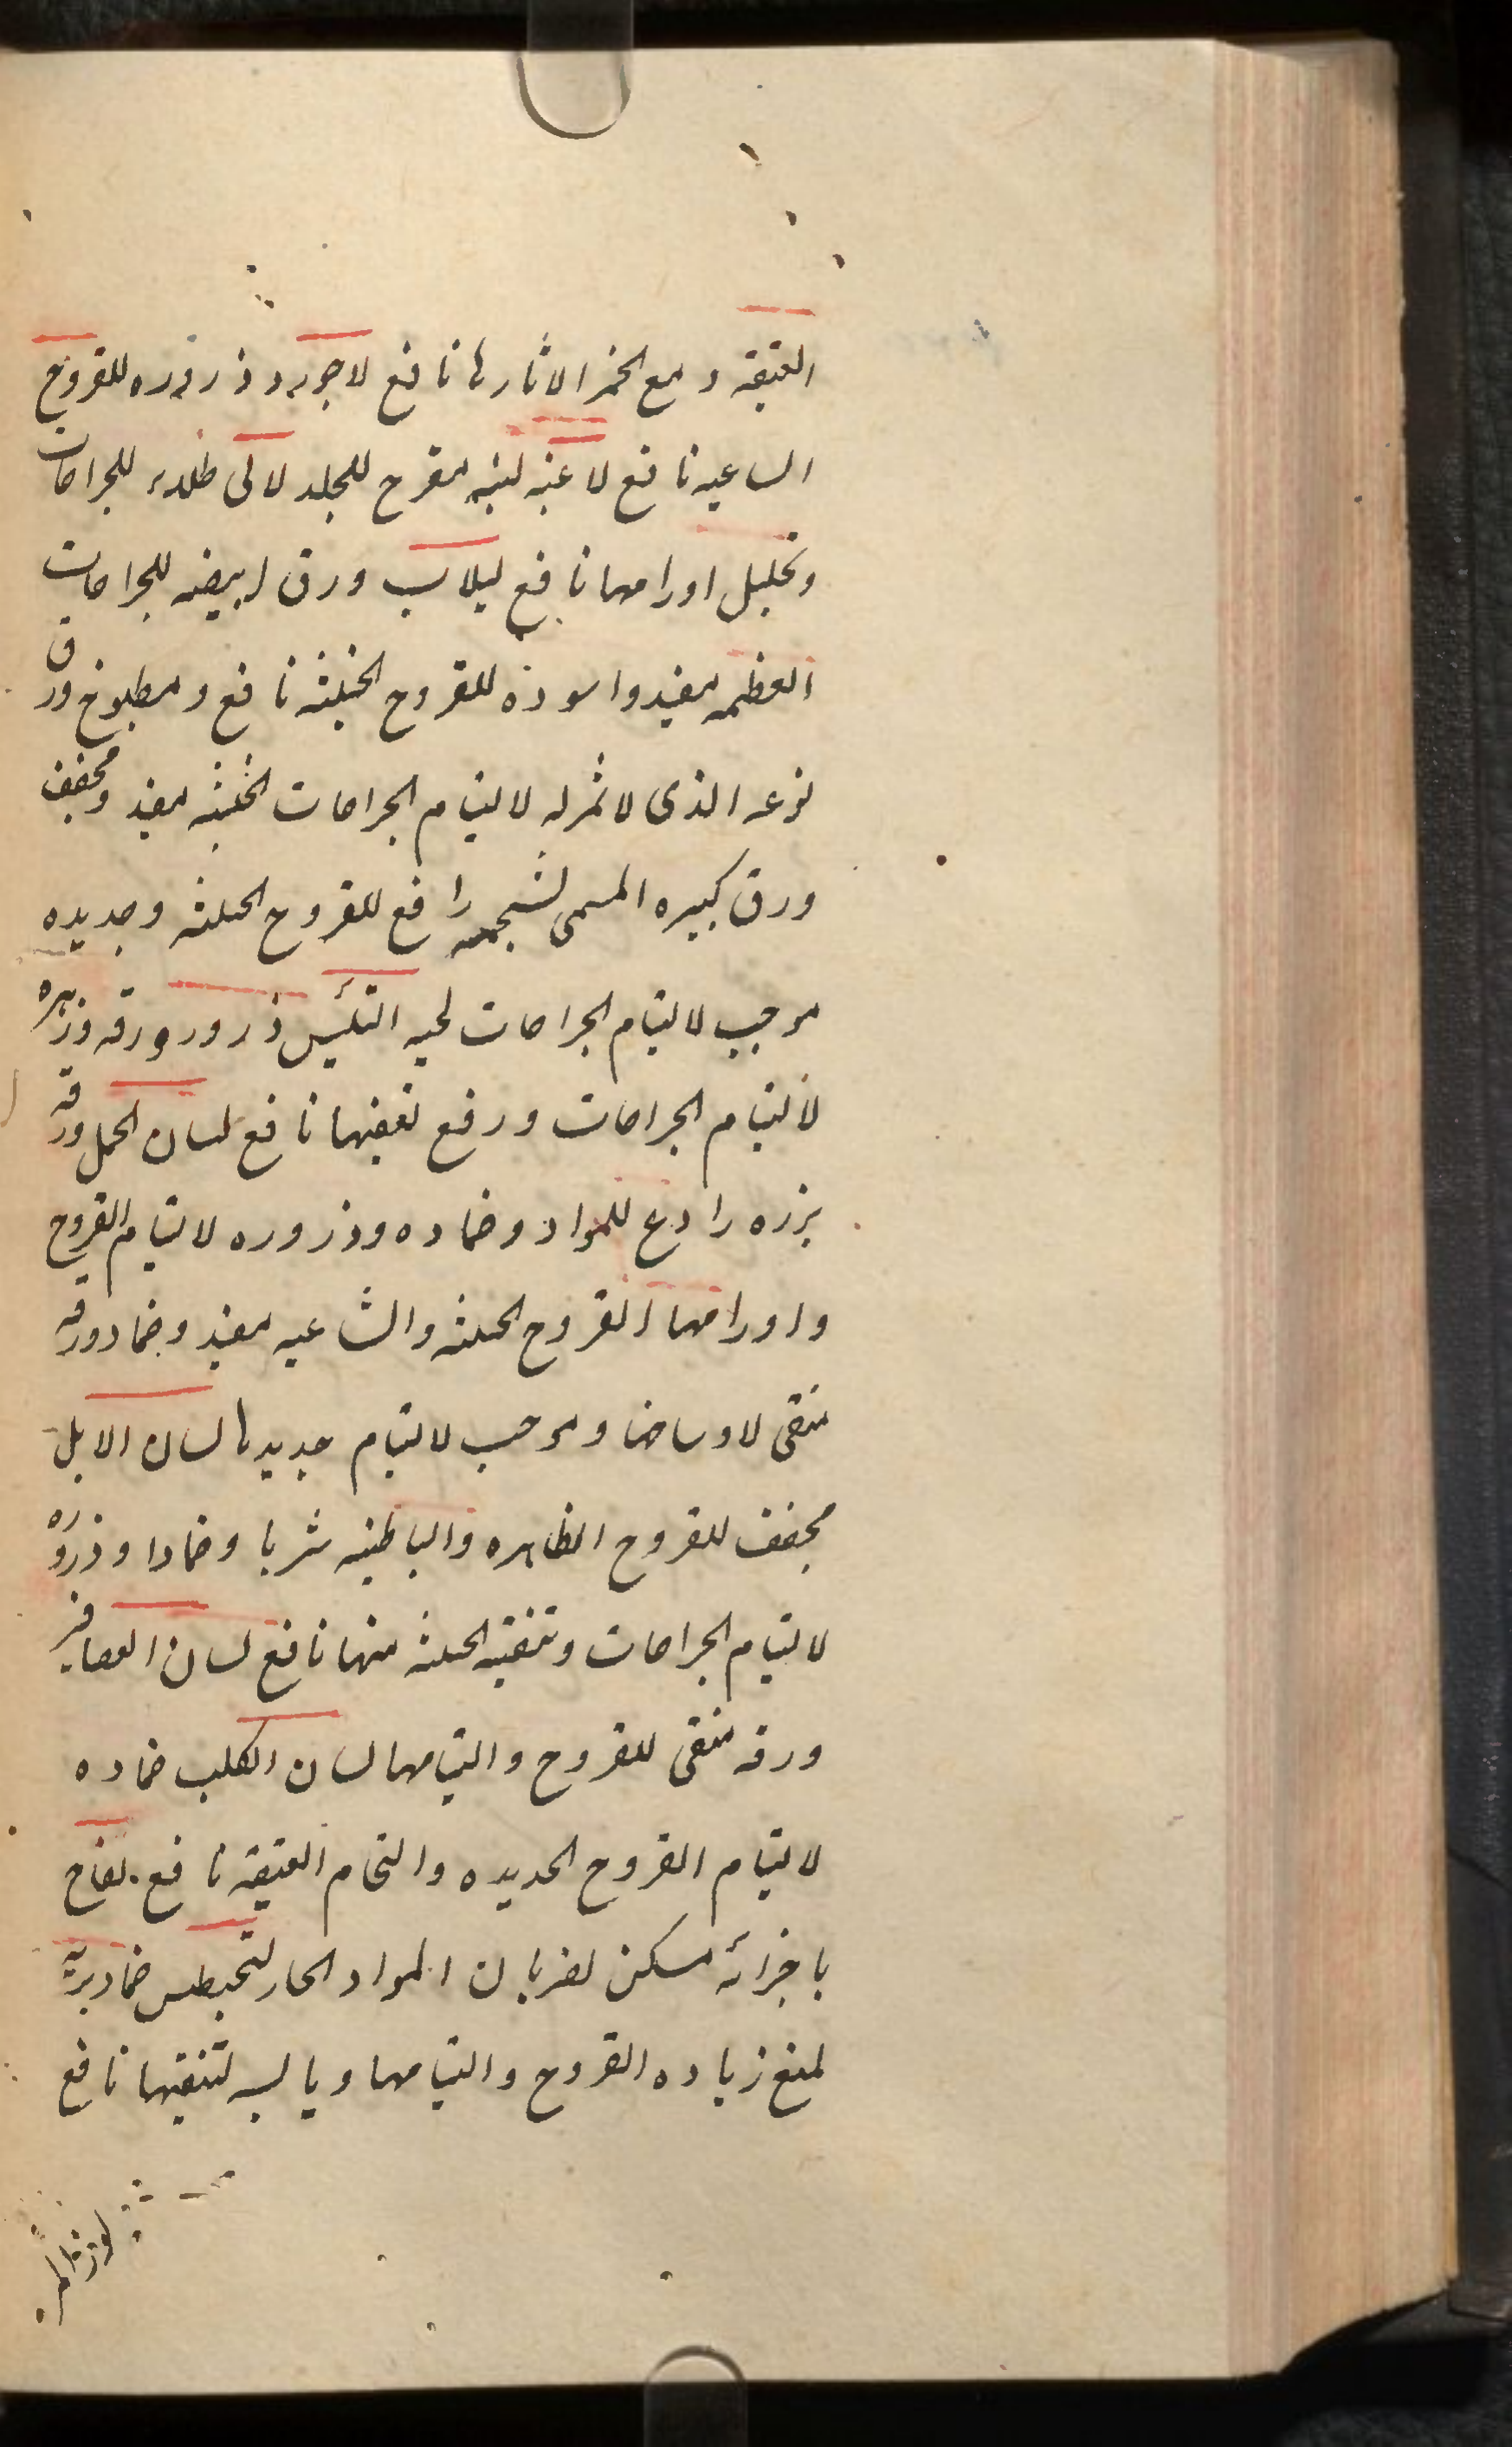 العتيقه و مع الخمر الاثارها نافع لاجورد ذروره للقروح
الساعيه نافع لاعيه لبنه مقرح للجلد لالى طلاء للجراحات
وتحليل اورامها نافع لبلاب ورق ابيضه للجراحات
العظمه مفيد واسوده للقروح الخبيثه نافع ومطبوخ ورق
نوعه الذى لا ثمر له لالتيام الجراحات الخبيثه مفيد ومجفف
ورق كبيره المسمى رافع للقروح الخبيثه وجديده
موجب لالتيام الجراحات لحيه التيس ذرور ورقه وزهره
لالتيام الجراحات ورفع تعفنها نافع لسان الحمل ورقه
بزره رادع للمواد وضماده وذروره لالتيام القروح
واورامها القروح الخبيثه والساعيه مفيد وضماد ورقه
منقى لاوساخها وموجب لالتيام جديدها لسان الابل
مجفف للقروح الظاهره والباطنه شربا وضمادا وذروره
لالتيام الجراحات وتنقيه الخبيثه منها نافع لسان العصافير
ورقه منقى للقروح والتيامها لسان الكلب ضماده
لالتيام القروح الجديده والتحام العتيقه نافع لفاح
باجزائه مسكن لضربان المواد الحار ضماد
لمنع زياده القروح والتيامها ويابسه لتنقيتها نافع